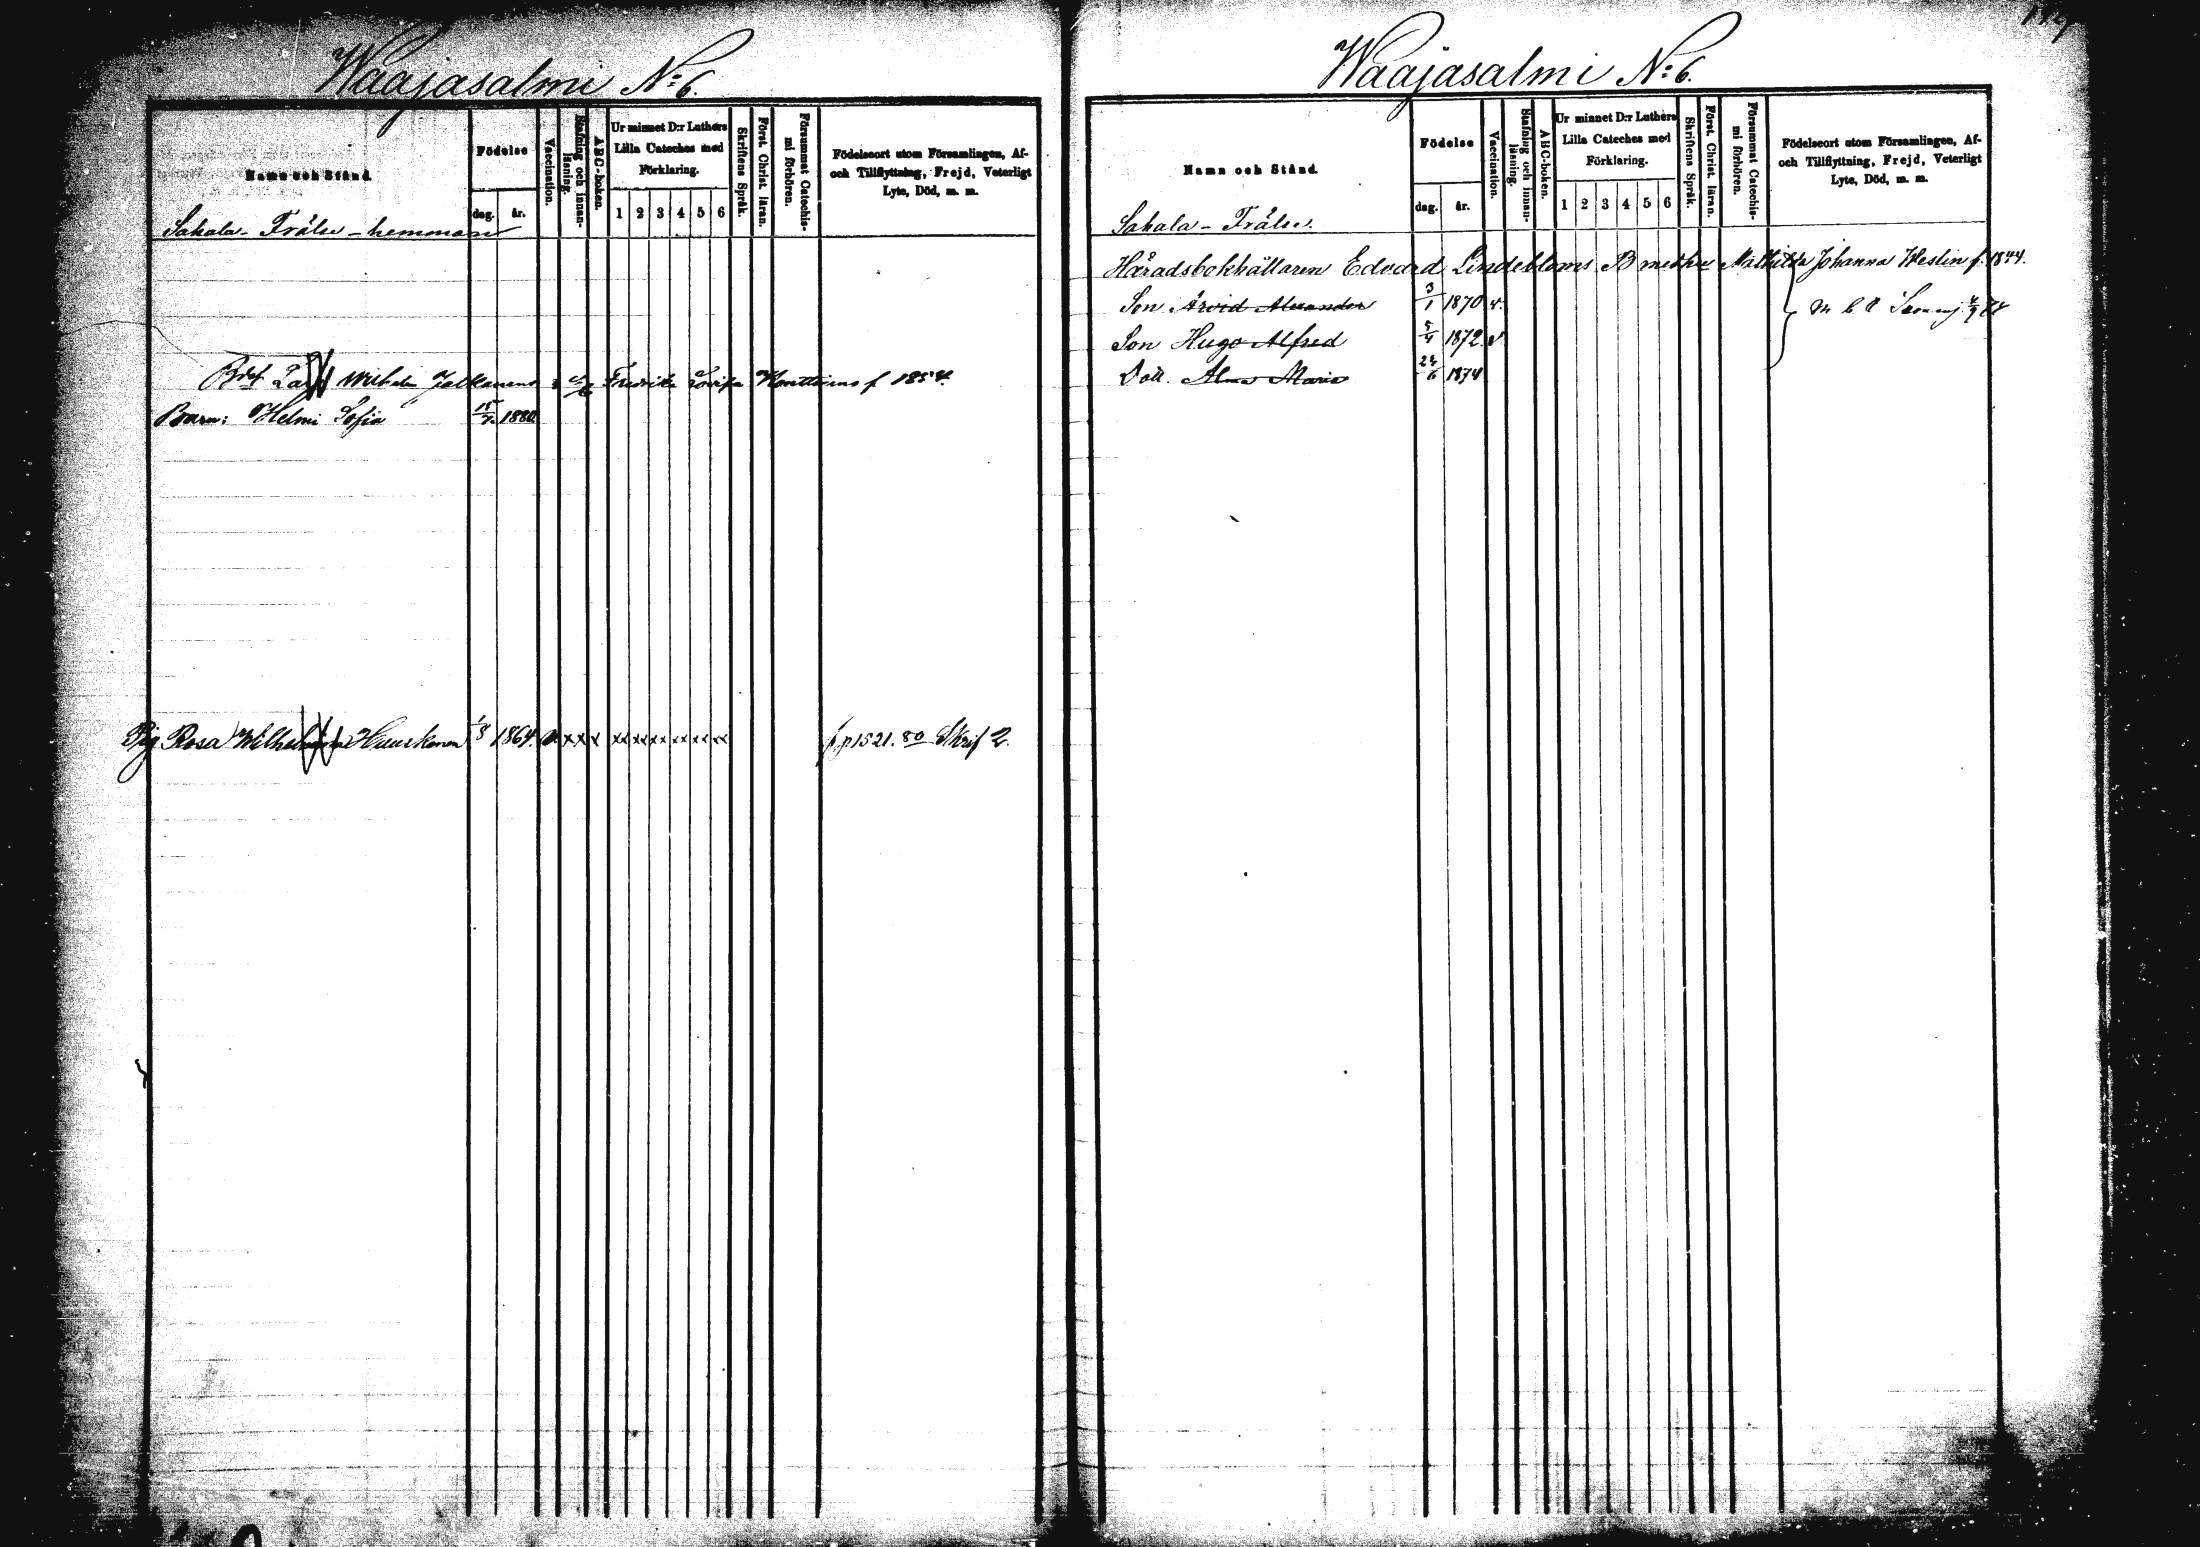 Waajasalmi N:o 6.
Namn och Stånd.
Födelse
dag. år.
Vaccination.
Stafning och innan-läsning.
ABC-boken.
Ur minnet D:r Luthers Lilla Cateches med Förklaring.
1 2 3 4 5 6
Skriftens Språk.
Först. Christ. läran.
Försummat Catechis-mi förhören.
Födelseort utom Församlingen, Af- och Tillflyttning, Frejd, Veterligt Lyte, Död, m. m.
Sahala - Frälse - hemman
Wilhelm Jalkanens Fredrika Lovisa f 1854.
Barn: Helmi Sofia 15/7 1880
Pig Rosa Wilhelmina Huuskonen 1/8 1864. f. p 1521. 80 Skrif 2.
Waajasalmi N:o 6.
Namn och Stånd.
Födelse
dag. år.
Vaccination.
Stafning och innan-läsning.
ABC-boken.
Ur minnet D:r Luthers Lilla Cateches med Förklaring.
1 2 3 4 5 6
Skriftens Språk.
Först. Christ. läran.
Försummat Catechis-mi förhören.
Födelseort utom Församlingen, Af- och Tillflyttning, Frejd, Veterligt Lyte, Död, m. m.
Sahala - Frälse.
Häradsbokhållaren Edvard Lindebloms Mathilda Johanna Heslin f. 1844.
Son Arvid Alexander 3/1 1870 v.
Son Hugo Alfred 5/4 1872 v
Dott. Alma Maria 24/6 1874